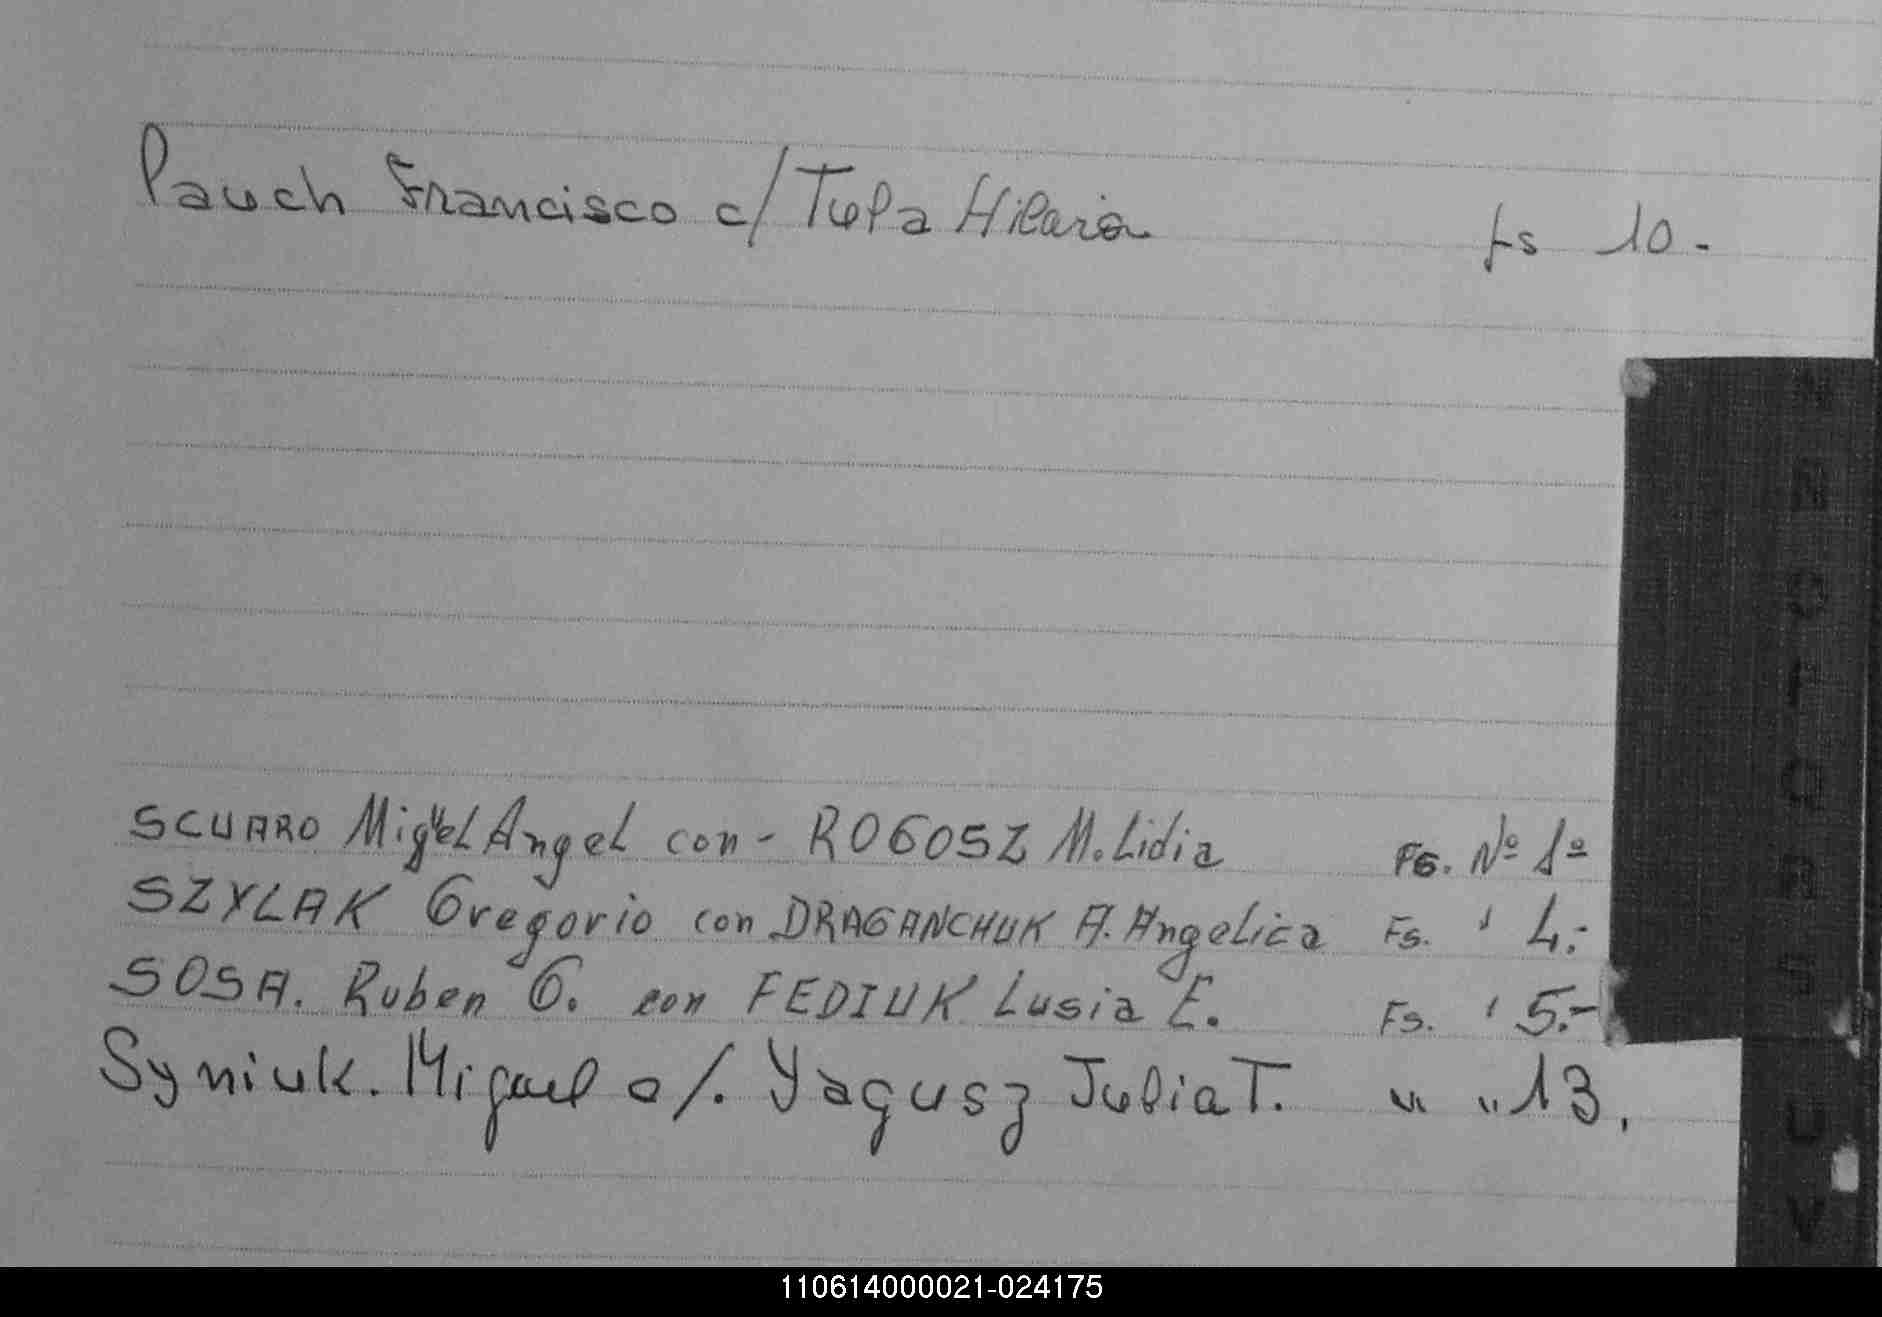 Pauch Francisco c/ Tula Hilaria fs 10.-
SCUARO Miguel Angel con - ROGOSZ M. Lidia Fs. Nº 1º
SZYLAK Gregorio con DRAGANCHUK A. Angelica Fs. " 4.-
SOSA. Ruben G. con FEDIUK Lusia E. Fs. " 5.-
Syniuk. Miguel c/. Yagusz Julia T. " " 13.
110614000021-024175